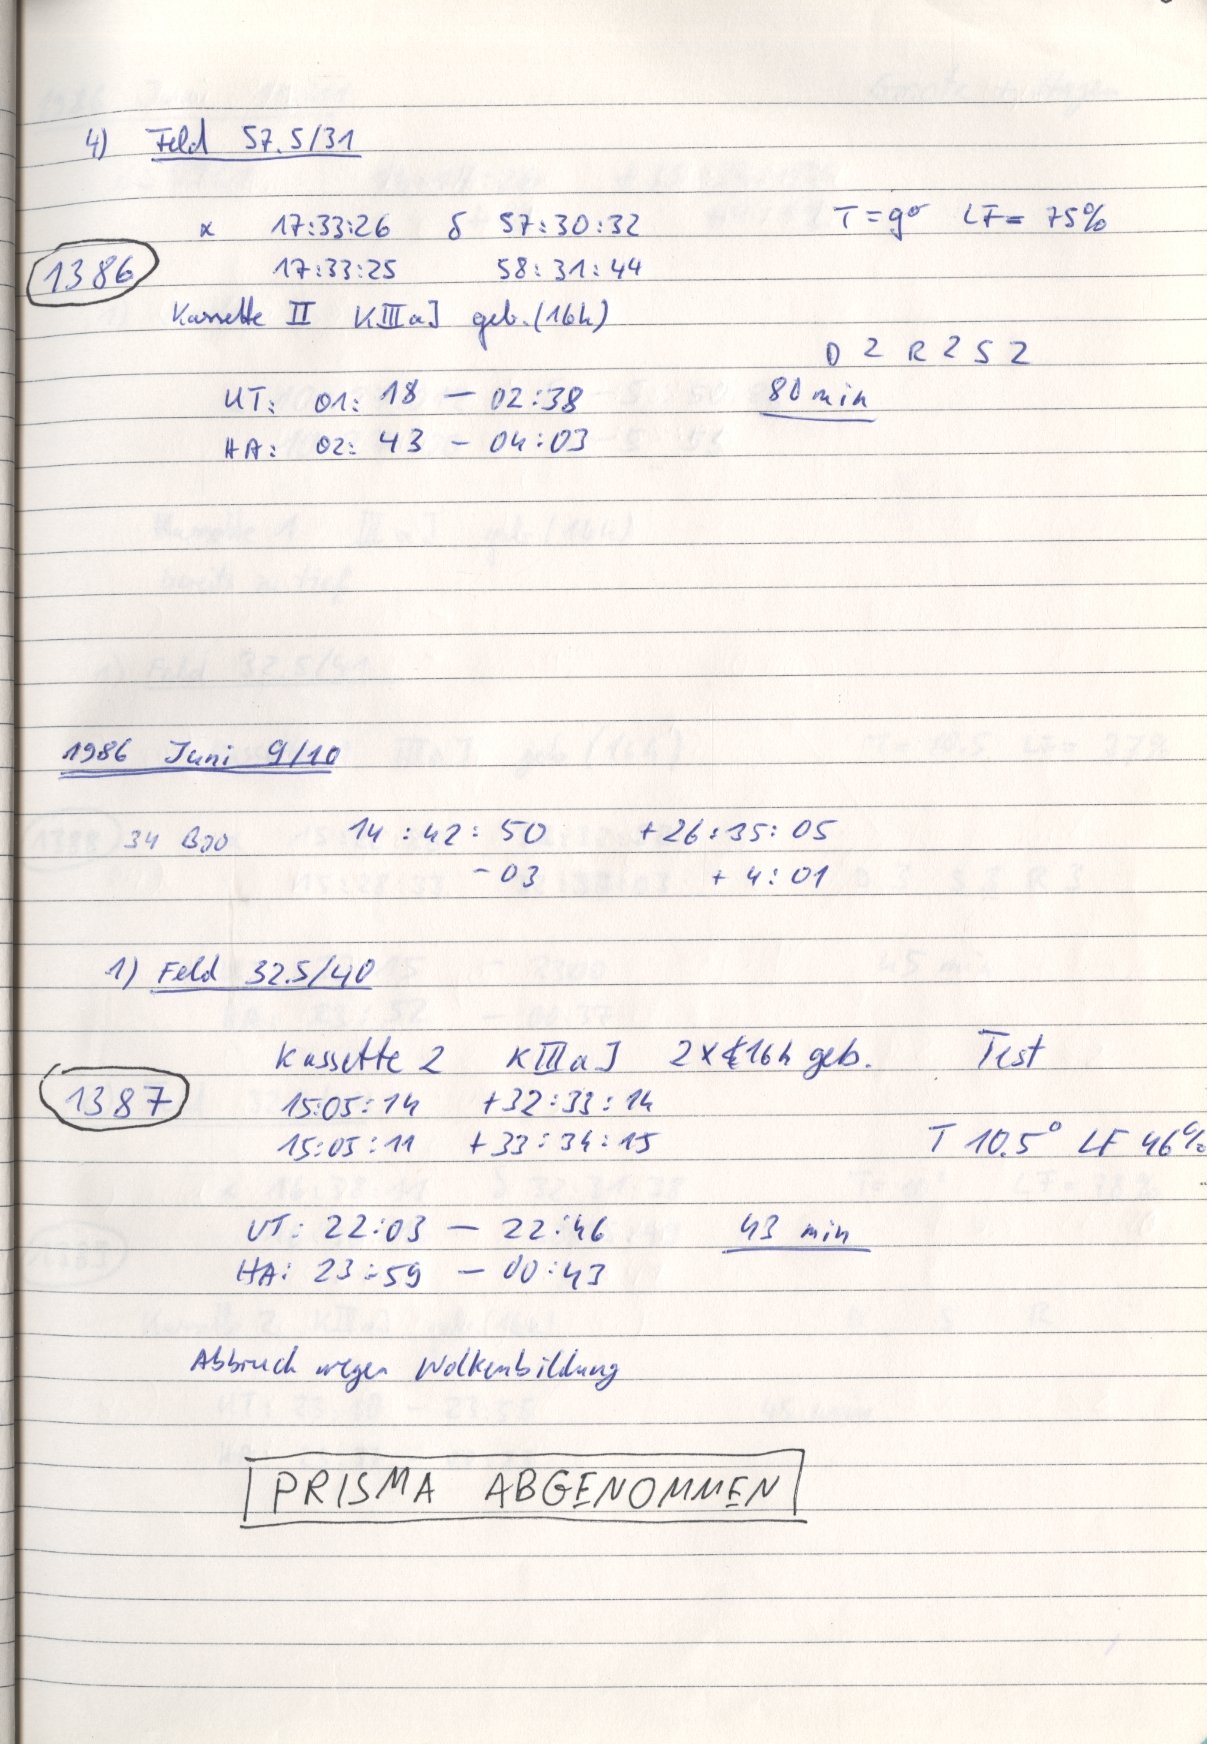 4) Feld 57.5/31
α 17:33:26 δ 57:30:32 T=9° LF= 75%
1386 17:33:25 58:31:44
Kassette II KIIIaJ geb. (16h)
D 2 R 2 S 2
UT: 01:18 — 02:38 80 min
HA: 02:43 — 04:03
1986 Juni 9/10
34 Boo 14:42:50 +26:35:05
-03 +4:01
1) Feld 32.5/40
Kassette 2 KIIIaJ 2x 16h geb. Test
1387 15:05:14 +32:33:14
15:05:11 +33:34:15 T 10.5° LF 46%
UT: 22:03 — 22:46 43 min
HA: 23:59 — 00:43
Abbruch wegen Wolkenbildung
PRISMA ABGENOMMEN